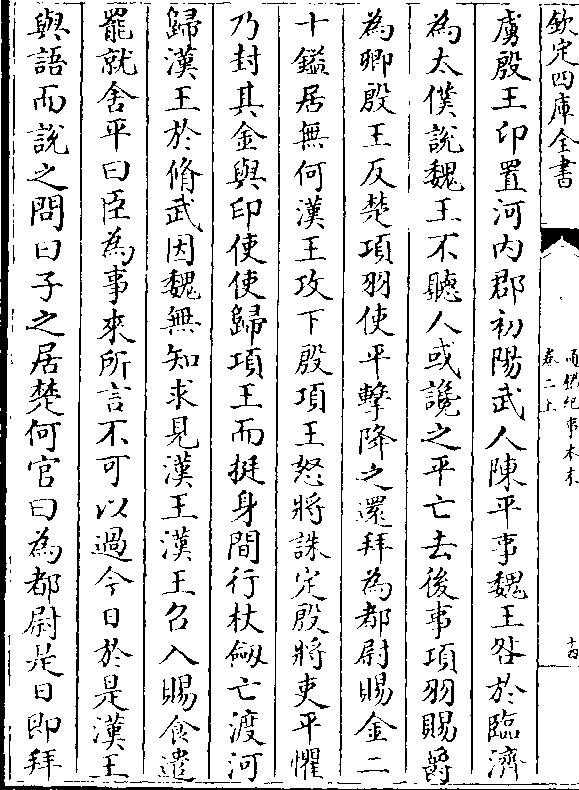 欽定四庫全書
通鑑紀事本末
卷二上
十四
虜殷王卬置河内郡初陽武人陳平事魏王咎於臨濟
為太僕說魏王不聽人或讒之平亡去後事項羽賜爵
為卿殷王反楚項羽使平擊降之還拜為都尉賜金二
十鎰居無何漢王攻下殷項王怒將誅定殷將吏平懼
乃封其金與印使使歸項王而挺身間行杖劔亡渡河
歸漢王於脩武因魏無知求見漢王漢王召入賜食遣
罷就舍平曰臣為事來所言不可以過今日於是漢王
與語而說之問曰子之居楚何官曰為都尉是日即拜